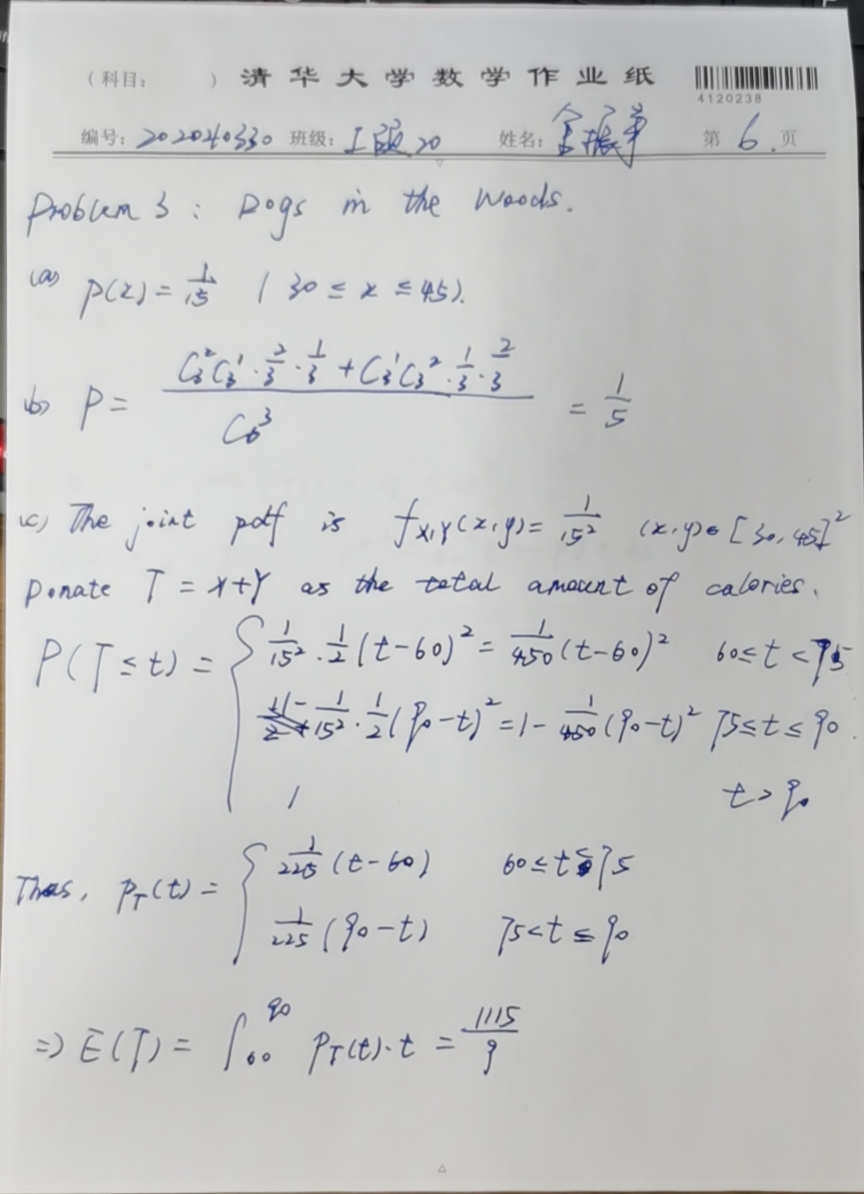 (科目: ) 清华大学数学作业纸
4120238
编号: 2020240330 班级: 工硕20 姓名: 第 6. 页
Problem 3 : Dogs in the Woods.
(a) P(x) = 1/15 ( 30 ≤ x ≤ 45).
(b) P = (C₃²C₃¹·2/3·1/3 + C₃¹C₃²·1/3·2/3) / C₆³ = 1/5
(c) The joint pdf is f_X,Y(x,y) = 1/15² (x,y)∈[30,45]²
Donate T = X+Y as the total amount of calories.
P(T≤t) = { 1/15² · 1/2 (t-60)² = 1/450 (t-60)² 60≤t<75
1 - 1/15² · 1/2 (90-t)² = 1 - 1/450 (90-t)² 75≤t≤90.
1 t>90
Thus, P_T(t) = { 1/225 (t-60) 60≤t≤75
1/225 (90-t) 75<t≤90
=> E(T) = ∫₆₀⁹⁰ P_T(t)·t = 1115/9